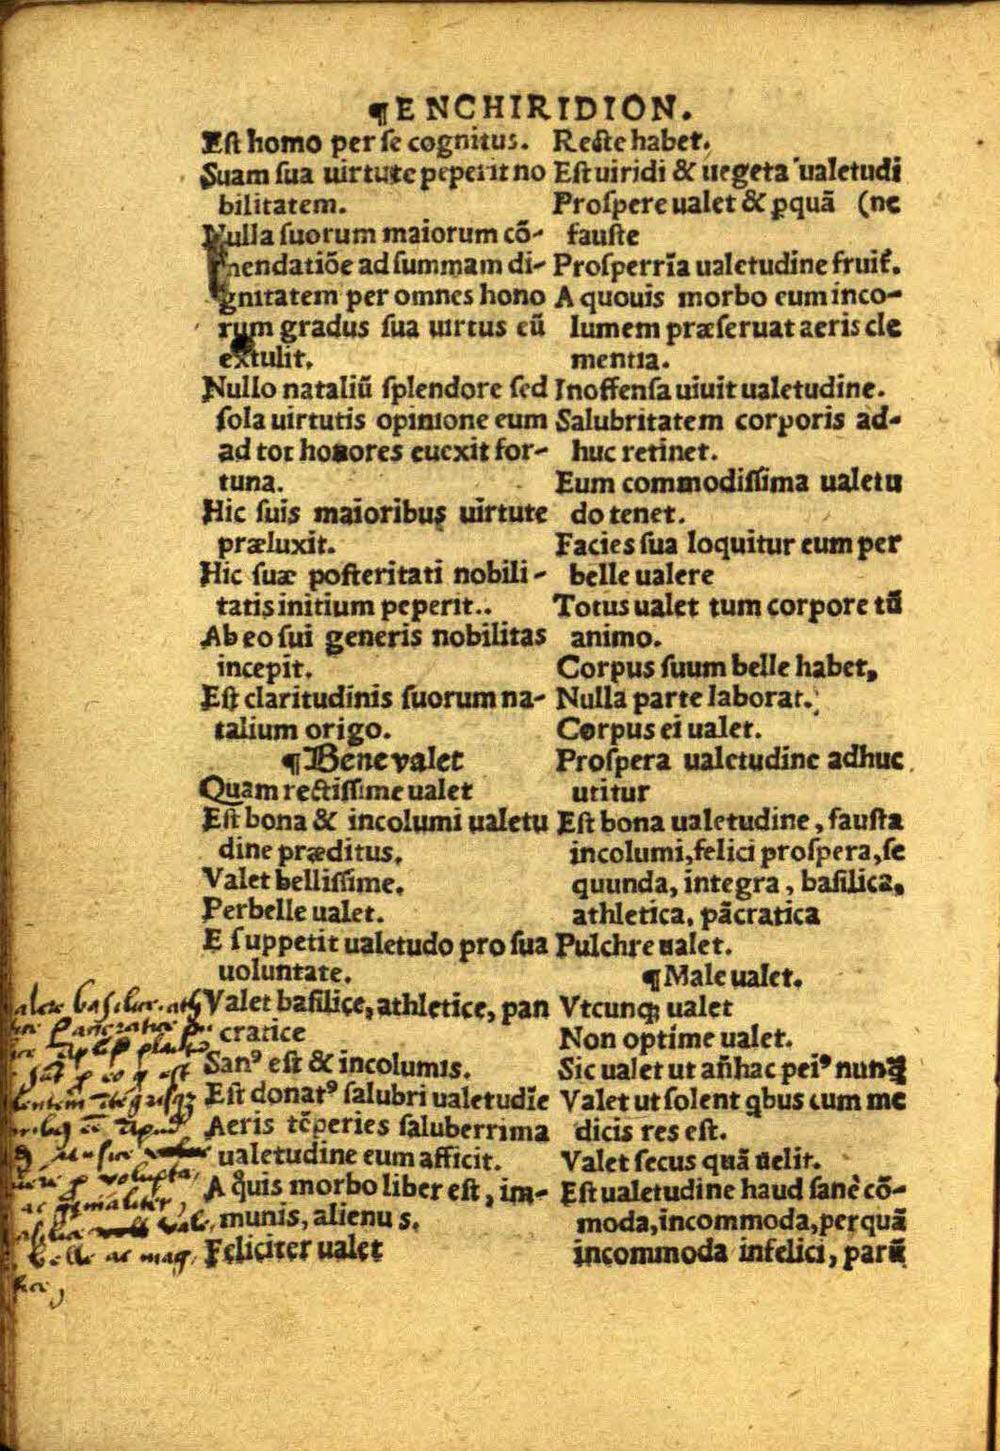 ¶ENCHIRIDION.
Eſt homo per ſe cognitus.
Suam ſua uirtute peperit no
bilitatem.
Nulla ſuorum maiorum cō-
mendatiōe ad ſummam di-
gnitatem per omnes hono
rum gradus ſua uirtus eū
extulit.
Nullo nataliū ſplendore ſed
ſola uirtutis opinione eum
ad tot honores euexit for-
tuna.
Hic ſuis maioribus uirtute
præluxit.
Hic ſuæ poſteritati nobili-
tatis initium peperit..
Ab eo ſui generis nobilitas
incepit.
Eſt claritudinis ſuorum na-
talium origo.
¶Bene valet
Quam rectiſſime ualet
Eſt bona & incolumi ualetu
dine præditus.
Valet belliſſime.
Perbelle ualet.
E ſuppetit ualetudo pro ſua
uoluntate.
Valet baſilice, athletice, pan
cratice
Sanꝰ eſt & incolumis.
Eſt donatꝰ ſalubri ualetudīe
Aeris tēperies ſaluberrima
ualetudine eum afficit.
A quis morbo liber eſt, im-
munis, alienus.
Feliciter ualet
Recte habet.
Eſt uiridi & uegeta ualetudi
Proſpere ualet & ꝑquā (ne
fauſte
Proſperrīa ualetudine fruit̃.
A quouis morbo eum inco-
lumem præſeruat aeris cle
mentia.
Inoffenſa uiuit ualetudine.
Salubritatem corporis ad-
huc retinet.
Eum commodiſſima ualetu
do tenet.
Facies ſua loquitur eum per
belle ualere
Totus ualet tum corpore tū
animo.
Corpus ſuum belle habet,
Nulla parte laborat.
Corpus ei ualet.
Proſpera ualetudine adhuc
utitur
Eſt bona ualetudine, fauſta
incolumi, felici proſpera, ſe
quunda, integra, baſilica,
athletica, pācratica
Pulchre ualet.
¶Male ualet.
Vtcunqꝫ ualet
Non optime ualet.
Sic ualet ut añhac peiꝰ nunꝗ̃
Valet ut ſolent ꝗbus cum me
dicis res eſt.
Valet ſecus quā uelit.
Eſt ualetudine haud ſane cō-
moda, incommoda, perquā
incommoda infelici, parū